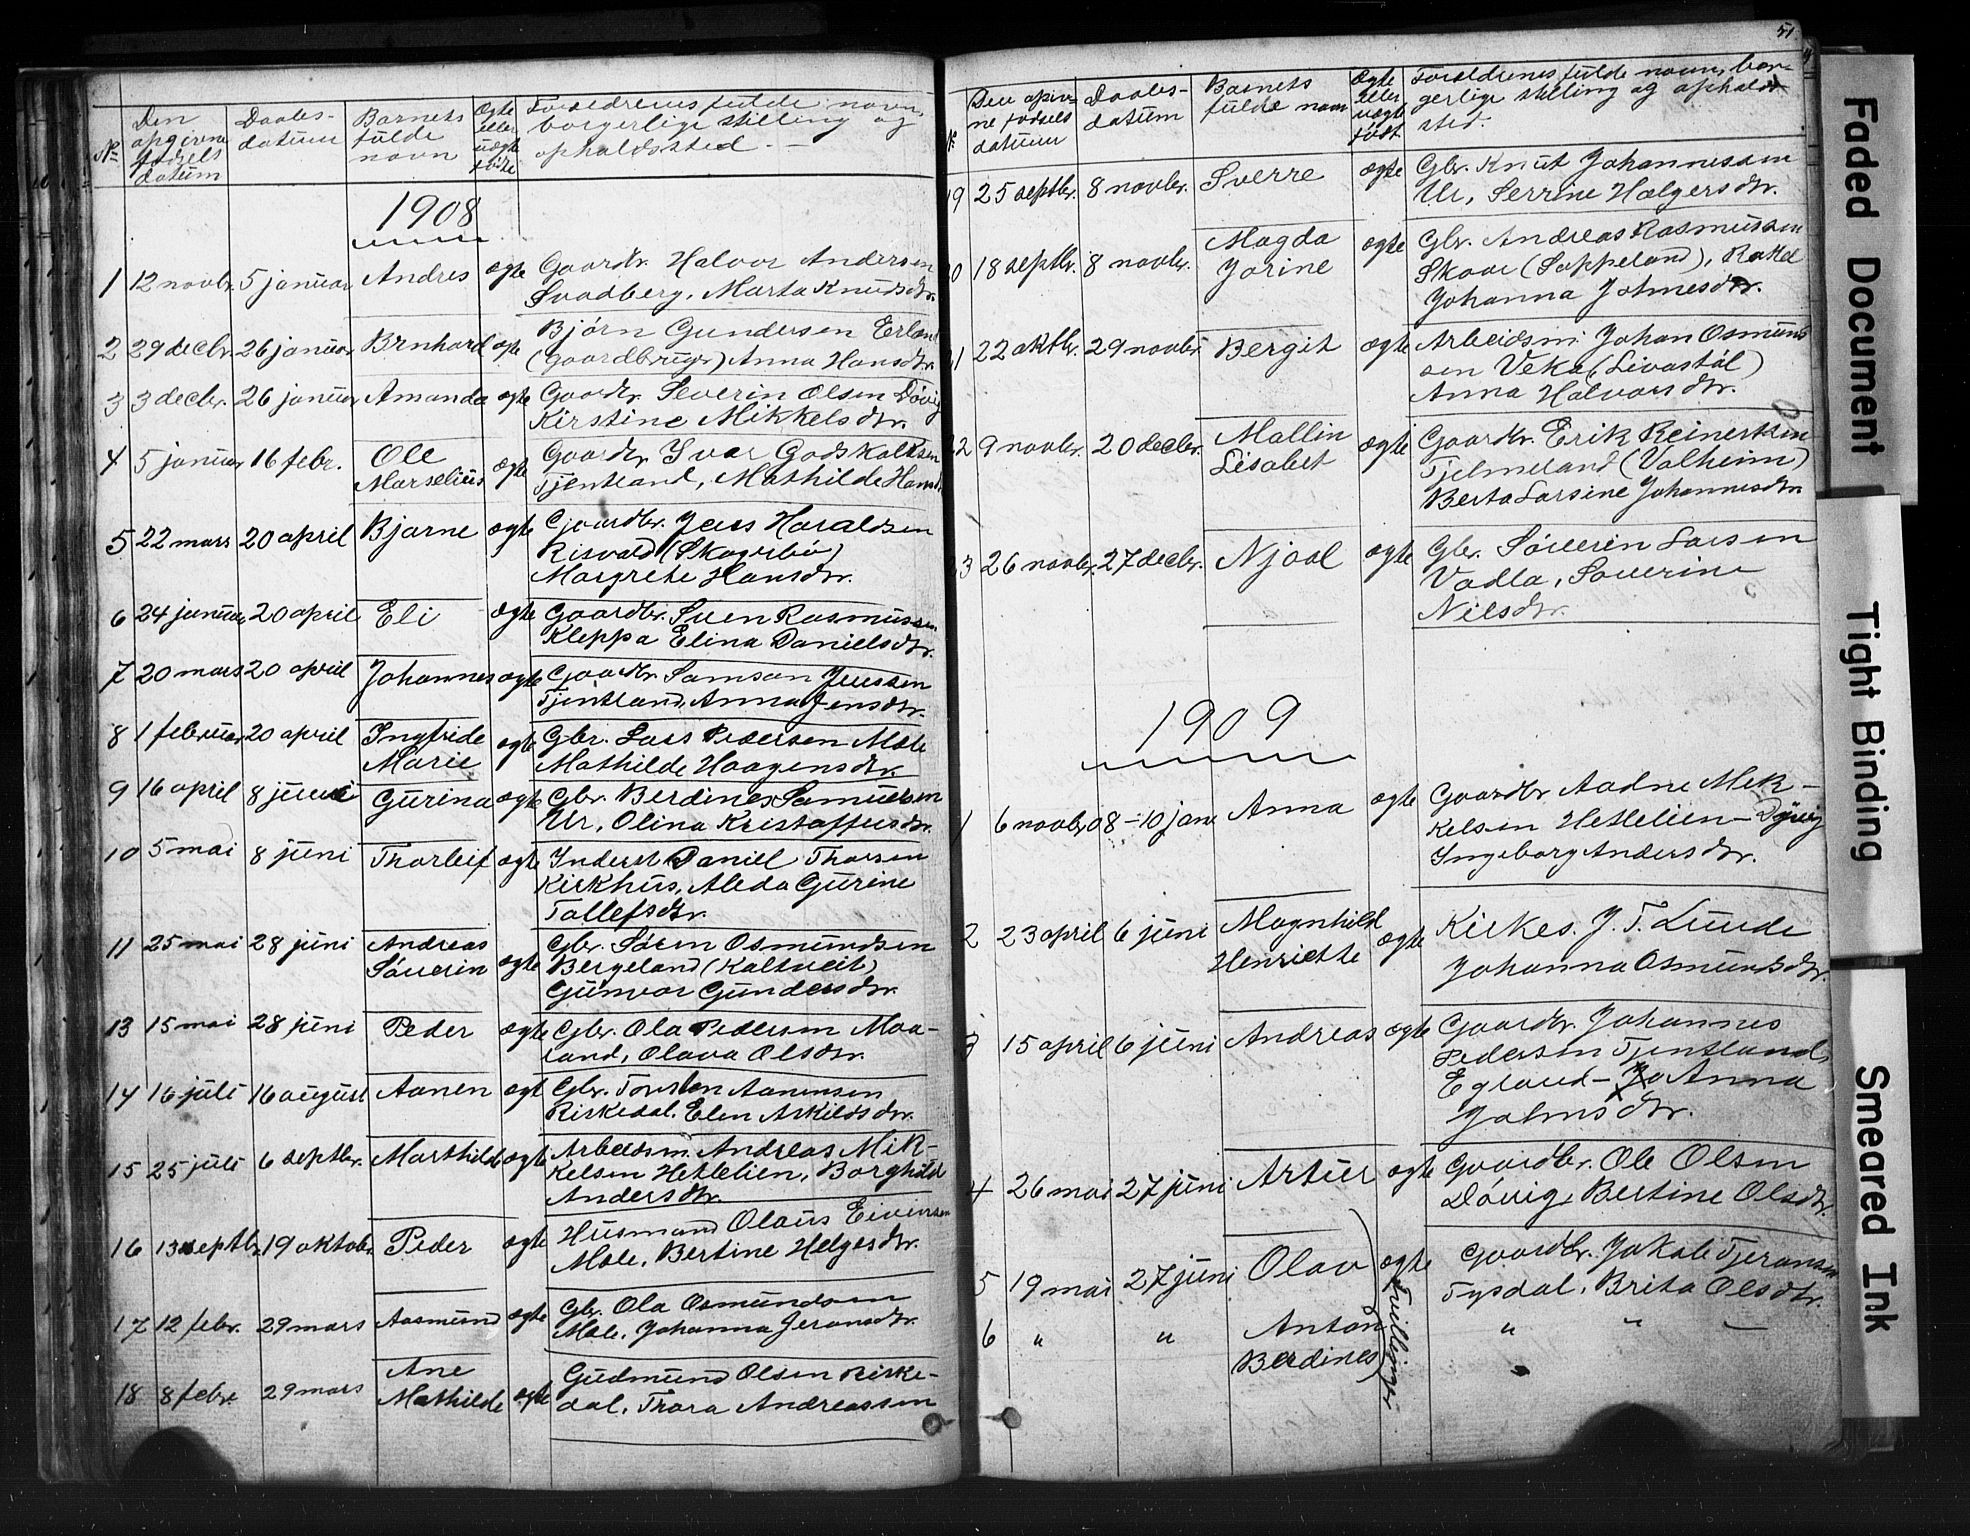 No
Den opgivne fødsels datum
Daabs- datum
Barnets fulde navn
Ægte eller uægte født
Forældrenes fulde navn, borgerlige stilling og opholdssted. —
1908
1 12 novbr. 5 januar Andres ægte Gaardbr. Halvor Andersen
Svadberg, Marta Knudsdtr.
2 29 decbr. 26 januar Brnhard ægte Bjørn Gundersen Erland
(gaardbruger) Anna Hansdtr.
3 3 decbr. 26 januar Amanda ægte Gaardbr. Severin Olsen Døvig
Kirstine Mikkelsdtr.
4 5 januar 16 febr. Ole Marselius ægte Gaardbr. Ivar Godskalksen
Tjentland, Mathilde Hansd.
5 22 mars 20 april Bjarne ægte Gaardbr. Jens Haraldsen
Risvold (Skogerbø)
Margrete Hansdtr.
6 24 januar 20 april Eli ægte Gaardbr. Sven Rasmussen
Kleppa Elina Danielsdtr.
7 20 mars 20 april Johannes ægte Gaardbr. Samson Jenssen
Tjentland, Anna Jensdtr.
8 1 februar 20 april Ingfride Marie ægte Gbr. Lars Pedersen Mæle
Mathilde Haagensdtr.
9 16 april 8 juni Gurina ægte Gbr. Berdines Samuelsen
Ur, Olina Kristoffersdtr.
10 5 mai 8 juni Thorleif ægte Inderst Daniel Thorsen
Kirkhus, Aleda Gurine
Tollefsdtr.
11 25 mai 28 juni Andreas Søverin ægte Gbr. Søren Osmundsen
Bergeland (Kaltveit)
Gunvor Gundersdtr.
13 15 mai 28 juni Peder ægte Gbr. Ola Pedersen Maa-
land, Olava Olsdtr.
14 16 juli 16 august Aanen ægt Gbr. Torsten Aanensen
Riskedal. Elen Askildsdtr.
15 25 juli 6 septbr. Marthilde ægte Arbeidsm. Andreas Mik-
kelsen Hetlelien, Borghild
Andersdtr.
16 13 septbr. 19 oktobr. Peder ægte Husmand Olaus Eivinsen
Mæle, Bertine Helgesdtr.
17 12 febr. 29 mars Aasmund ægte Gbr. Ola Osmundsen
Mæle, Johanna Jeransdtr.
18 8 febr. 29 mars Ane Mathilde ægte Gudmund Olsen Riske-
dal. Thora Andreassen
51.
No
Den opgivne fødsels datum
Daabs- datum
Barnets fulde navn
Ægte eller uægte født
Forældrenes fulde navn, bor-
gerlige stilling og opholds
sted.
19 25 septbr. 8 novbr. Sverre ægte Gbr. Knut Johannessen
Ur, Serrine Hælgersdtr.
20 18 septbr. 8 novbr. Magda Jorine ægte Gbr. Andreas Rasmussen
Skaar (Soppeland), Rakel
Johanna Johnesdtr.
21 22 oktbr. 29 novbr. Bergit ægte Arbeidsm. Johan Osmund
sen Veka (Livastøl)
Anna Halvorsdtr.
22 9 novbr. 20 decbr. Mallin Lisabet ægte Gaardbr. Erik Reinertsen
Tjelmeland (Valheim)
Berta Larsine Johannesdtr.
23 26 novbr. 27 decbr. Njaal ægte Gbr. Søverin Larsen
Vadla, Saverine
Nilsdtr.
1909
1 6 novbr 08 – 10 jan. Anna ægte Gaardbr Aadne Mik-
kelsen Hetlelien – Døvig
Ingeborg Andersdtr.
2 23 april 6 juni Magnhild Henriette ægte Kirkes. J. T. Lunde
Johanna Osmundsdtr.
3 15 april 6 juni Andreas ægte Gaardbr. Johannes
Pedersen Tjentland,
Egland – Anna
Johnsdtr.
4 26 mai 27 juni Artur ægte Gaardbr. Ole Olsen
Døvig, Bertine Olsdtr.
5 19 mai 27 juni Olav ægte Gaardbr. Jakob Tjeransen
Tysdal, Brita Olsdtr.
6 " " Anton Berdines Tvillinger " " —
"
Faded Document
Tight Binding
Smeared Ink